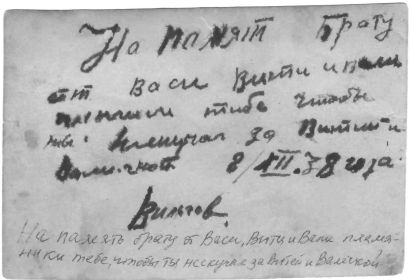 На памят брату
от Васи Витти и Вали
племники ктибе чтобы
ты нискучал за Виттит и
Валичкот 8/III 38 года
На память брату от Васи, Витти и Вали племя-
ники тебе, чтобы ты не скучал за Витей и Валечкой